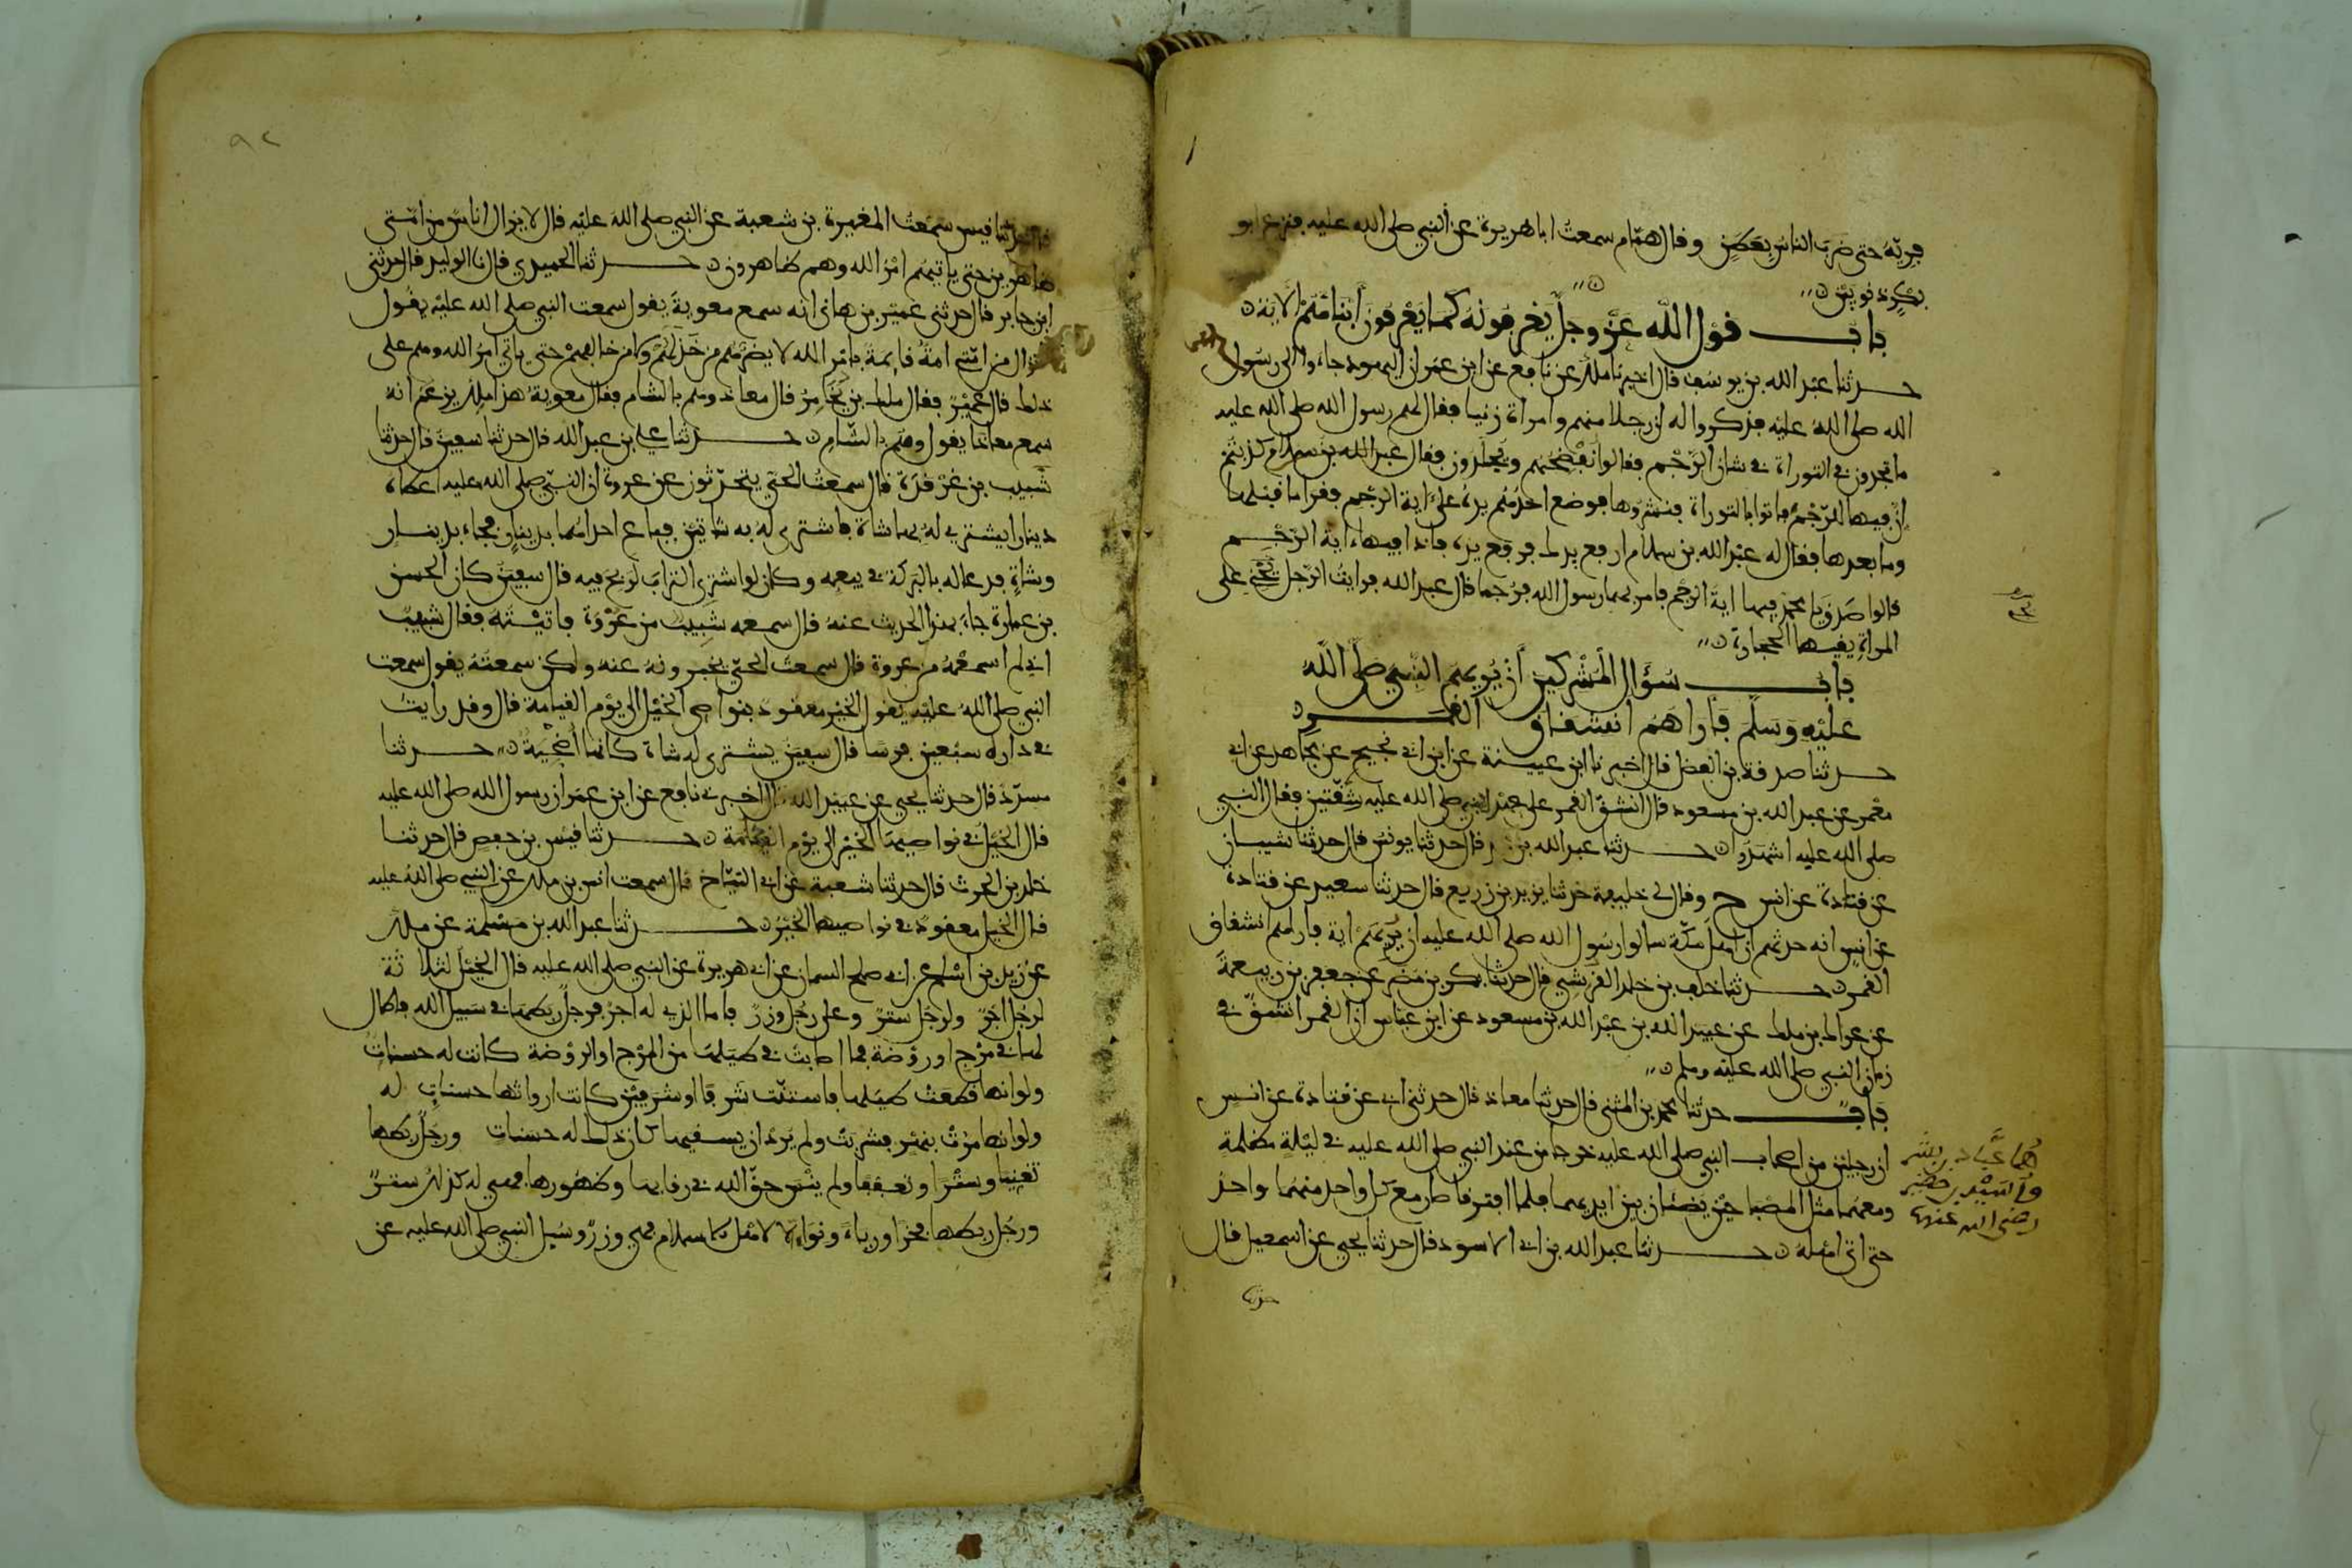 فريه حتى ضرب الناس بعطن وقال همام سمعت ابا هريرة عن النبي صلى الله عليه فنزع ابو
بكر ذنوبين
باب قول الله عز وجل يعرفونه كما يعرفون ابناءهم الاية
حدثنا عبد الله بن يوسف قال اخبرنا ملك عن نافع عن ابن عمر ان اليهود جاءوا الى رسول
الله صلى الله عليه فذكروا له ان رجلا منهم وامراة زنيا فقال لهم رسول الله صلى الله عليه
ما تجدون في التوراة في شان الرجم فقالوا نفضحهم ويجلدون فقال عبد الله بن سلام كذبتم
ان فيها للرجم فاتوا بالتوراة فنشروها فوضع احدهم يده على اية الرجم فقرا ما قبلها
وما بعدها فقال له عبد الله بن سلام ارفع يدك فرفع يده فاذا فيها اية الرجم
قالوا صدق يا محمد فيها اية الرجم فامر بهما رسول الله فرجما قال عبد الله فرايت الرجل على
المراة يقيها الحجارة
باب سؤال المشركين ان يريهم النبي صلى الله
عليه وسلم فاراهم انشقاق القمر
حدثنا صدقة بن الفضل قال اخبرنا ابن عيينة عن ابن ابي نجيح عن مجاهد عن ابي
معمر عن عبد الله بن مسعود قال انشق القمر على عهد النبي صلى الله عليه شقتين فقال النبي
صلى الله عليه اشهدوا حدثنا عبد الله بن قال حدثنا يونس قال حدثنا شيبان
عن قتادة عن انس ح وقال لي خليفة حدثنا يزيد بن زريع قال حدثنا سعيد عن قتادة
عن انس انه حدثهم ان اهل مكة سالوا رسول الله صلى الله عليه ان يريهم اية فاراهم انشقاق
القمر حدثنا خلف بن خلد القرشي قال حدثنا بكر بن مضر عن جعفر بن ربيعة
عن عراك بن ملك عن عبيد الله بن عبد الله بن مسعود عن ابن عباس ان القمر انشق في
زمان النبي صلى الله عليه وسلم
باب حدثنا محمد بن المثنى قال حدثنا معاذ قال حدثني ابي عن قتادة عن انس
ان رجلين من اصحاب النبي صلى الله عليه خرجا من عند النبي صلى الله عليه في ليلة مظلمة
ومعهما مثل المصباحين يضئان بين ايديهما فلما افترقا صار مع كل واحد منهما واحد
حتى اتى اهله حدثنا عبد الله بن ابي الاسود قال حدثنا يحيى عن اسمعيل قال
هما عباد بن بشر
واسيد بن حضير
رضي الله عنهما
حدثنا
٩٢
قال حدثنا قيس سمعت المغيرة بن شعبة عن النبي صلى الله عليه قال لا يزال اناس من امتي
ظاهرين حتى ياتيهم امر الله وهم ظاهرون حدثنا الحميدي قال نا الوليد قال حدثني
ابن جابر قال حدثني عمير بن هاني انه سمع معوية يقول سمعت النبي صلى الله عليه يقول
لا تزال من امتي امة قايمة بامر الله لا يضرهم من خذلهم ولا من خالفهم حتى ياتي امر الله وهم على
ذلك قال عمير فقال ملك بن يخامر قال معاذ وهم بالشام فقال معوية هذا ملك يزعم انه
سمع معاذا يقول وهم بالشام حدثنا علي بن عبد الله قال حدثنا سفين قال حدثنا
شبيب بن غرقدة قال سمعت الحي يتحدثون عن عروة ان النبي صلى الله عليه اعطاه
دينارا يشتري له بها شاة فاشترى له به شاتين فباع احداهما بدينار فجاء بدينار
وشاة فدعا له بالبركة في بيعه وكان لو اشترى التراب لربح فيه قال سفين كان الحسن
بن عمارة جاء بهذا الحديث عنه قال سمعه شبيب من عروة فاتيته فقال شبيب
اني لم اسمعه من عروة قال سمعت الحي يخبرونه عنه ولكن سمعته يقول سمعت
النبي صلى الله عليه يقول الخير معقود بنواصي الخيل الى يوم القيامة قال وقد رايت
في داره سبعين فرسا قال سفين يشتري له شاة كانها اضحية حدثنا
مسدد قال حدثنا يحيى عن عبيد الله قال اخبرني نافع عن ابن عمر ان رسول الله صلى الله عليه
قال الخيل في نواصيها الخير الى يوم القيامة حدثنا قيس بن حفص قال حدثنا
خلد بن الحرث قال حدثنا شعبة عن ابي التياح قال سمعت انس بن ملك عن النبي صلى الله عليه
قال الخيل معقود في نواصيها الخير حدثنا عبد الله بن مسلمة عن ملك
عن زيد بن اسلم عن ابي صلح السمان عن ابي هريرة عن النبي صلى الله عليه قال الخيل لثلاثة
لرجل اجر ولرجل ستر وعلى رجل وزر فاما الذي له اجر فرجل ربطها في سبيل الله فاطال
لها في مرج او روضة فما اصابت في طيلها من المرج او الروضة كانت له حسنات
ولو انها قطعت طيلها فاستنت شرفا او شرفين كانت ارواثها حسنات له
ولو انها مرت بنهر فشربت ولم يرد ان يسقيها كان ذلك له حسنات ورجل ربطها
تغنيا وسترا وتعففا ولم ينس حق الله في رقابها وظهورها فهي له كذلك ستر
ورجل ربطها فخرا ورياء ونواء لاهل الاسلام فهي وزر وسيل النبي صلى الله عليه عن